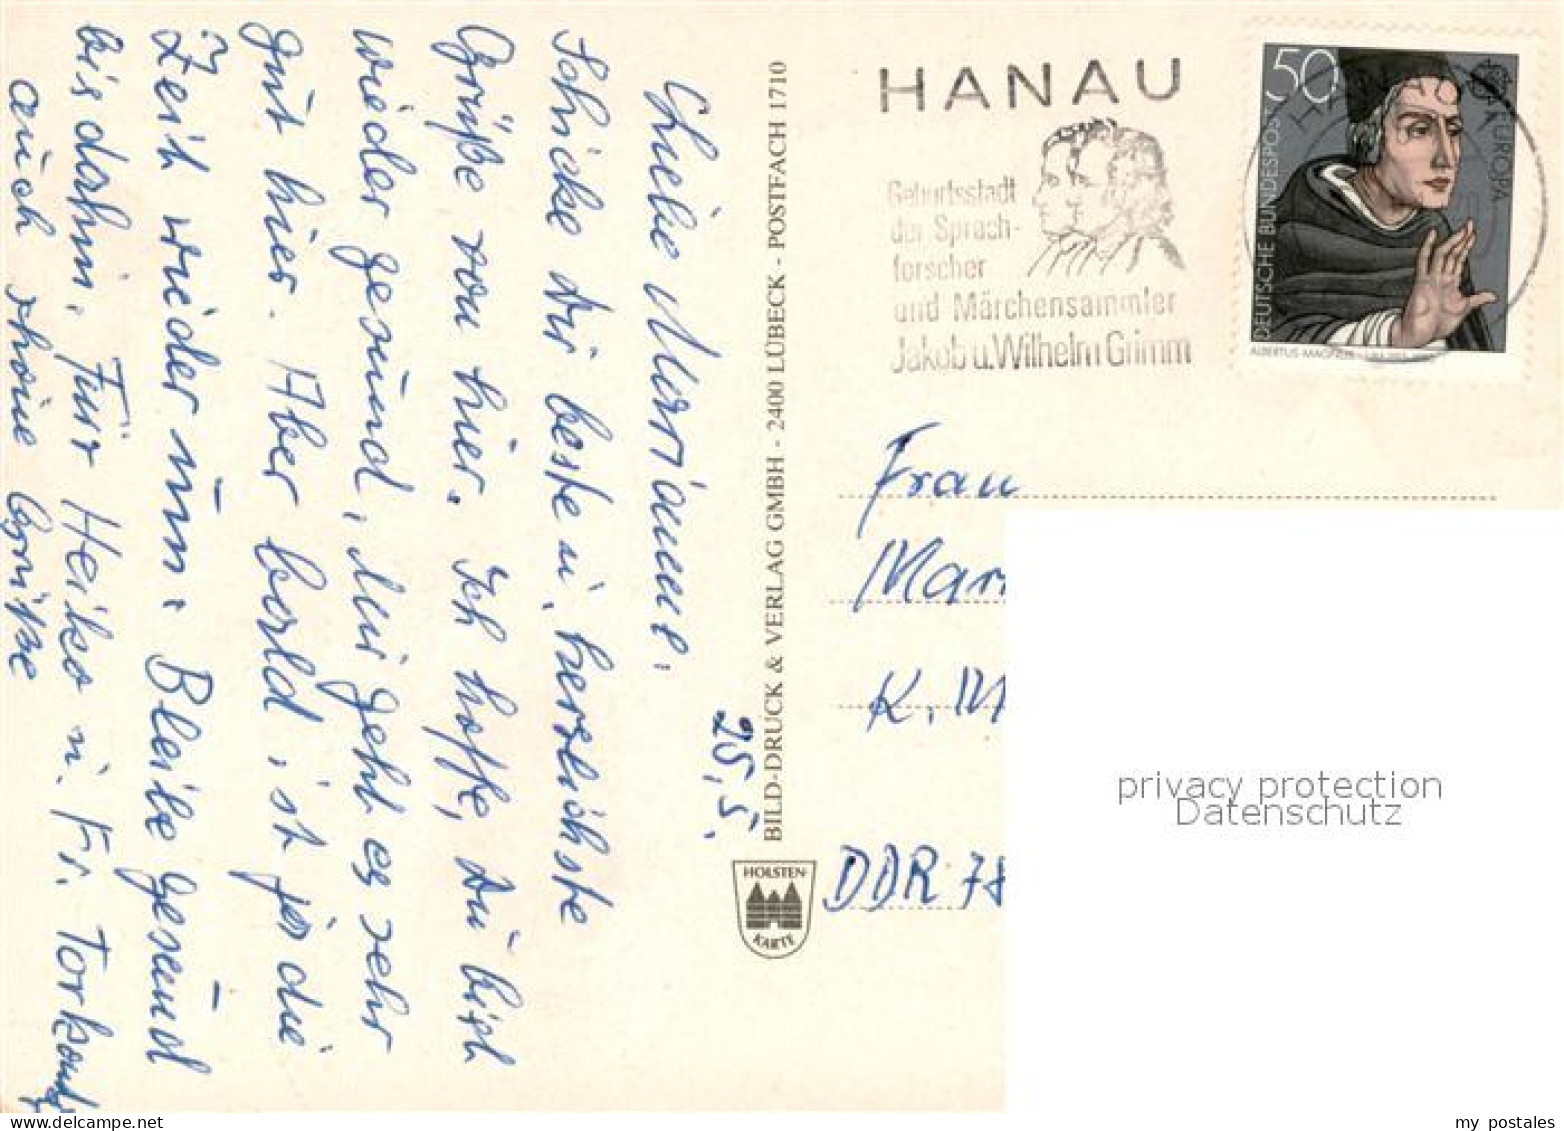 25.5.
Liebe Marianne.
Schicke dir beste u. herzlichste
Grüße von hier. Ich hoffe, du bist
wieder gesund, Mir geht es sehr
gut hier. Aber bald, ist ja die
Zeit wieder rum. Bleibe gesund
bis dahin. Für Heiko u. Fr.
auch schöne Grüße
BILD-DRUCK & VERLAG GMBH - 2400 LÜBECK - POSTFACH 1710
HOLSTEN-
KARTE
HANAU
Geburtsstadt
der Sprach-
forscher
und Märchensammler
Jakob u. Wilhelm Grimm
50
DEUTSCHE BUNDESPOST
EUROPA
ALBERTUS MAGNUS
Frau
Mar
K. M
DDR 78
privacy protection
Datenschutz
my postales